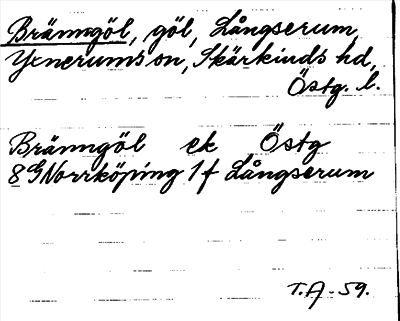 Bränngöl, göl, Långserum,
Yxnerums sn, Skärkinds hd,
Östg. l.
Bränngöl ek Östg
8 G Norrköping 1 f Långserum
T.A-59.